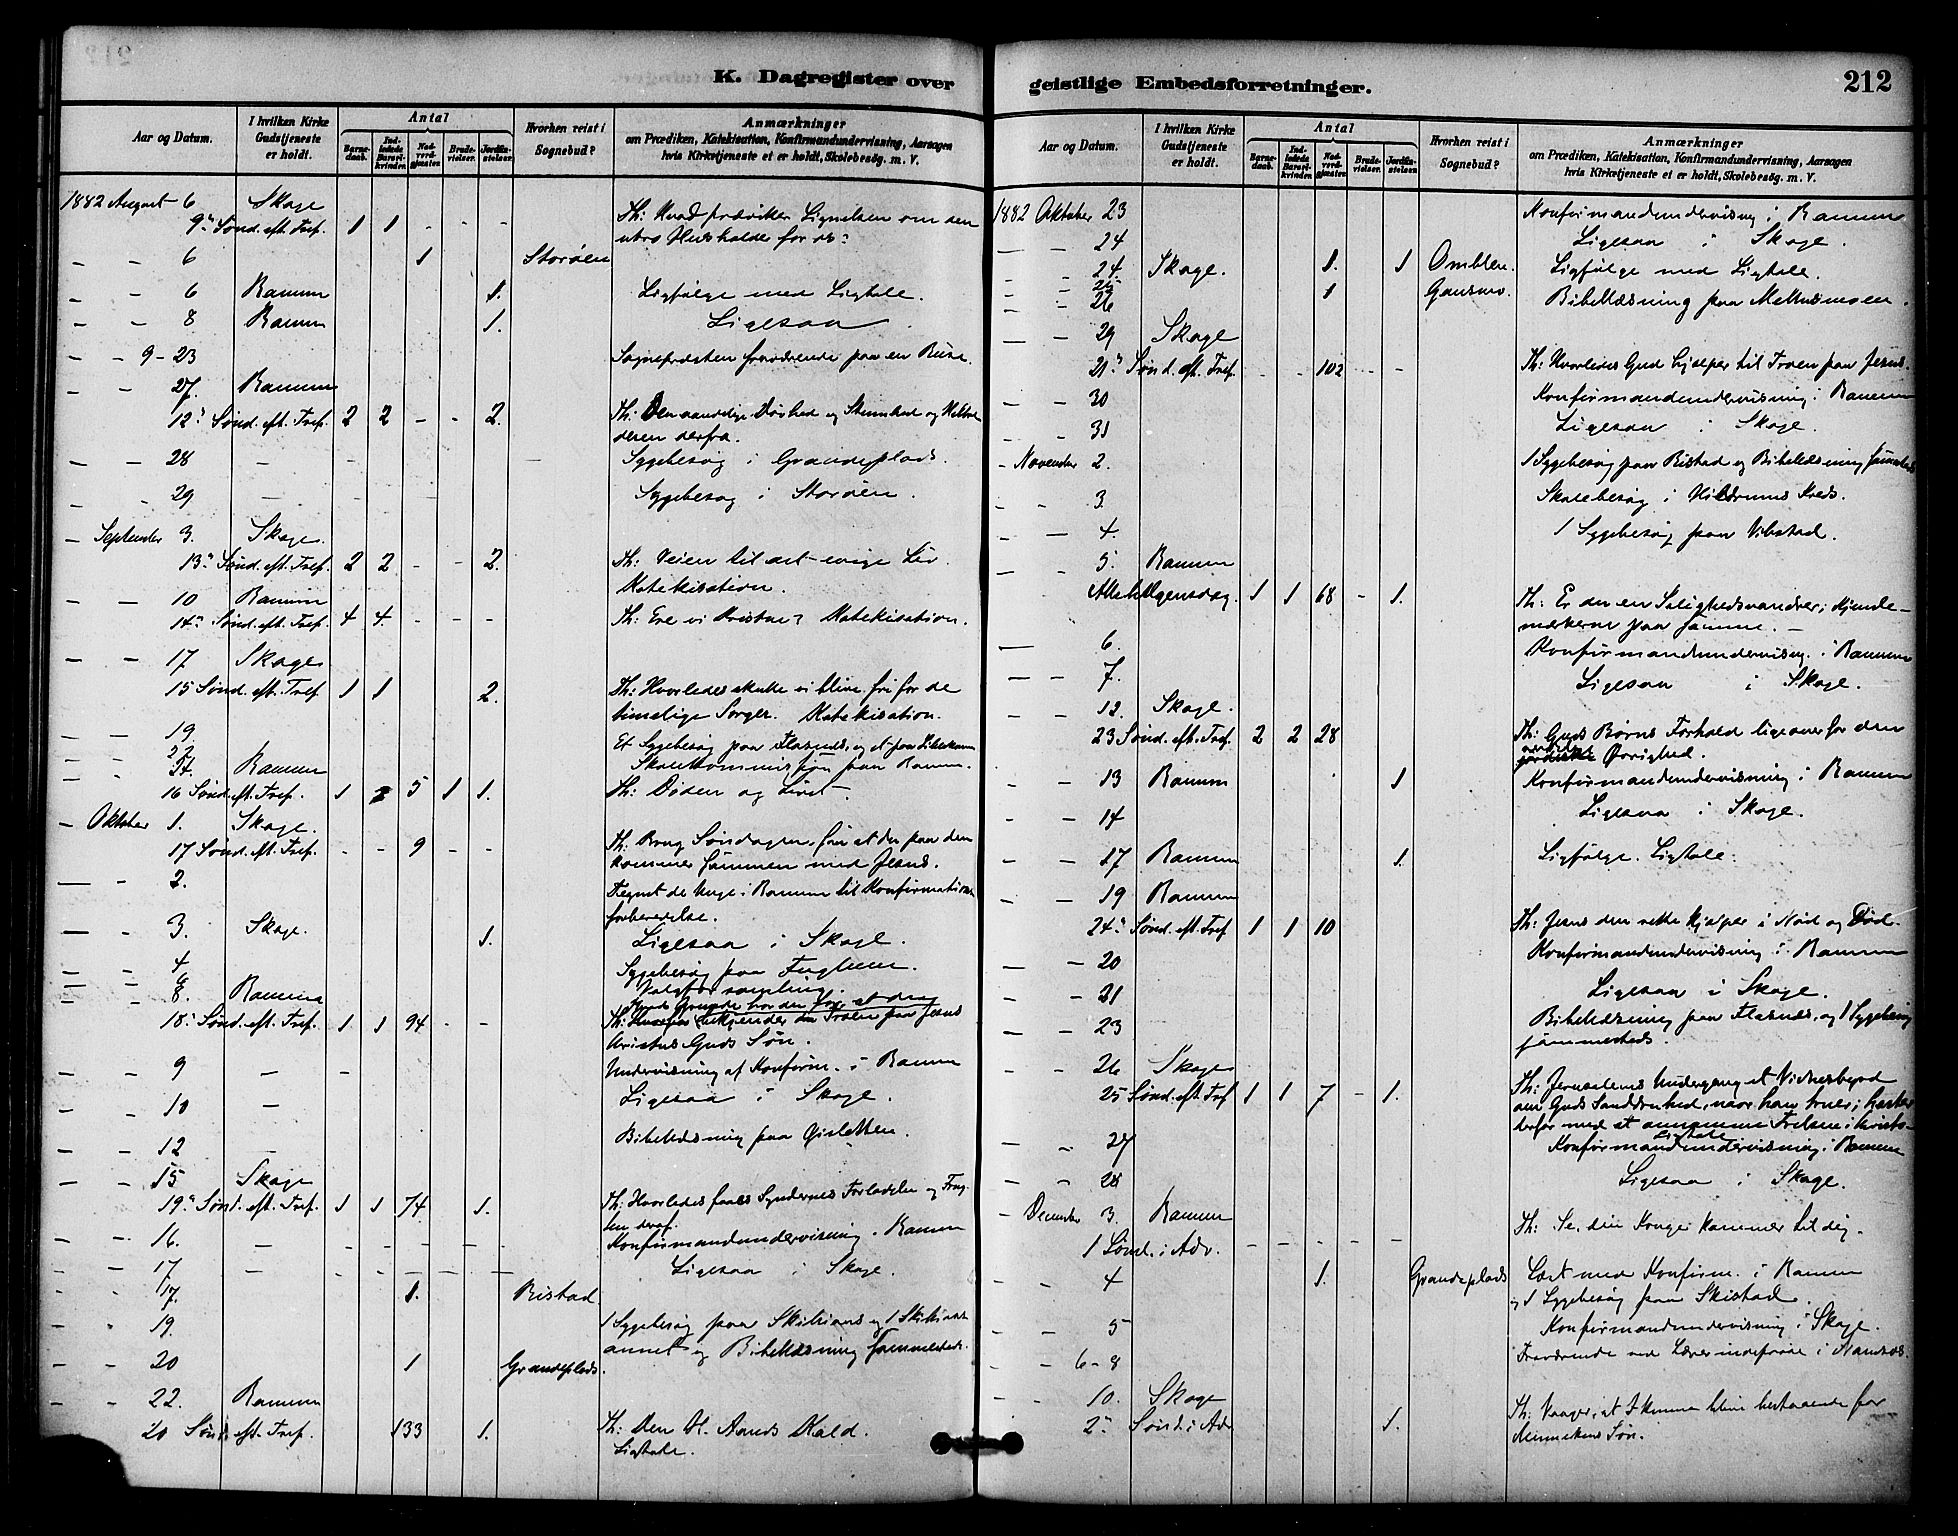 K. Dagregister over
Aar og Datum.
I hvilken Kirke Gudstjeneste er holdt.
Antal
Barnedaab.
Indledede Barselkvinder.
Nadverdgjæster.
Brudevielser.
Jordfæstelser.
Hvorhen reist i Sognebud?
Anmærkninger
om Prædiken, Katekisation, Konfirmandundervisning, Aarsagen
hvis Kirketjeneste et er holdt, Skolebesøg. m. V.
1882 August 6 Skage
9de Sønd. eft. Tref. 1 1 - - - Th: Hvad prædiker Lignelsen om den
utro Husholder for os?
- - 6 1 Storøen
- - 6 Ranum 1. Ligfølge med Ligtale.
- - 8 Ranum 1. Ligesaa.
- - 9-23 Sognepræsten fraværende paa en Reise.
- - 27. Ranum
12te Sønd. eft. Tref. 2 2 - - 2. Th: Den aandelige Døvhed og Stumhed og
deren derfra.
- - 28 - - Sygebesøg i Grandeplads.
- 29 - - Sygebesøg i Storøen.
- September 3. Skage.
13de Sønd. eft. Tref. 2 2 - - 2. Th: Veien til det evige Liv.
Katekisation.
- - 10 Ranum
14de Sønd. eft. Tref. 4 4. - - - Th: Ere vi Kristne? Katekisation.
- - 17 Skage
15 Sønd. eft. Tref. 1 1 2. Th: Hvorledes skulle vi blive fri for de
timelige Sorger. Katekisation.
- - 19. Et Sygebesøg paa Flasnes, og et paa
- - 22 Skolekommission paa Ranum.
- - 24. Ranum
16 Sønd. eft. Tref. 1 5 1 1. Th: Døden og Livet.
- Oktober 1. Skage.
17 Sønd. eft. Tref. - - 9 - - Th: Brug Søndagen saa at du paa den
kommer sammen med Jesus.
- - 2. Tegnet de Unge i Ranum til Konfirmations
forberedelse.
- - 3. Skage. 1. Ligesaa i Skage.
- - 4 Sygebesøg paa Fuglem.
- - 6 Valgforsamling.
- - 8. Ranum
18de Sønd. eft. Tref. 1. 1 94 - - Th: bekjender din Troen paa Jesus
Kristus Guds Søn.
- - 9 - - Undervisning af Konfirm. i Ranum
- - 10 - Ligesaa i Skage.
- - 12 - Bibellæsning paa Gisletten.
- - 15 Skage
19de Sønd. eft. Tref. 1 1 74. 1. Th: Hvorledes faaes Syndernes Forladelse og Frug-
ten deraf.
- - 16. - Konfirmandundervisning. Ranum
- - 17 - Ligesaa i Skage.
- - 17. 1. Bistad.
19. 1 Sygebesøg paa
annet og Bibellæsning sammesteds.
- - 20 1 Grandeplads.
- - 22. Ranum
20 Sønd. eft. Tref. 133 1. Th: Den H. Aands Kald.
Ligtale.
geistlige Embedsforretninger.
212
Aar og Datum.
I hvilken Kirke Gudstjeneste er holdt.
Antal
Barnedaab.
Indledede Barselkvinder.
Nadverdgjæster.
Brudevielser.
Jordfæstelser.
Hvorhen reist i Sognebud?
Anmærkninger
om Prædiken, Katekisation, Konfirmandundervisning, Aarsagen
hvis Kirketjeneste et er holdt, Skolebesøg. m. V.
1882 Oktober 23 Konfirmandundervisning i Ranum
- - 24 Ligesaa i Skage.
- - 24. Skage. 1. 1 Omblen. Ligfølge med Ligtale.
- - 25
- - 26 1 Gansmo. Bibellæsning paa Mellusmoen.
- - 29 Skage
21de Sønd. eft. Tref. - - 102 - - Th: Hvorledes Gud hjælper til Troen paa Jesus.
- - 30 Konfirmandundervisning i Ranum
- - 31 Ligesaa i Skage.
- November 2. 1 Sygebesøg paa Bistad og Bibellæsning sammesteds
- - 3. Skolebesøg i Hildrums Kreds.
- - 4. 1 Sygebesøg paa Vibstad.
- - 5. Ranum
Allehelgensdag. 1 1 68 - 1. Th: Er du en Salighedsvandrer; Kjende-
mærkerne paa samme.
- 6. Konfirmandundervisn. i Ranum
- - 7. Ligesaa i Skage.
- - 12. Skage.
23 Sønd. eft. Tref. 2 2 28 Th: Guds Børns Forhold ligeoverfor den
Øvrighed.
- - 13 Ranum 1 Konfirmandundervisning i Ranum
- - 14 Ligesaa i Skage.
- - 17 Ranum 1. Ligfølge. Ligtale.
- - 19 Ranum
24de Sønd. eft. Tref. 1 1 10 Th: Jesus den rette Hjælper i Nød og Død.
- - 20 Konfirmandundervisning i Ranum
- - 21 Ligesaa i Skage.
- - 23 Bibellæsning paa Flasnes, og 1 Sygebesøg
sammesteds.
- - 26 Skage
25 Sønd. eft. Tref. 1 1 7 - 1. Th: Jerusalems Undergang et Vidnesbyrd
om Guds Sanddruhed, naar han truer;
derfor med at annamme Frelsen i Kristo.
Ligtale
- 27 Konfirmandundervisning i Ranum
- - 28 Ligesaa i Skage.
- December 3. Ranum Th: Se, din Konge kommer til dig.
1 Sønd. i Adv. - - - - -
- - 4 1. Grandeplads Læst med Konfirm. i Ranum
og 1 Sygebesøg paa Skistad.
- - 5 Konfirmandundervisning i Skage.
- - 6-8 Fraværende ved i Namsos.
- - 10. Skage
2den Sønd. i Adv 1. Th: Vaager, at I kunne blive bestaaende for
Menneskens Søn.